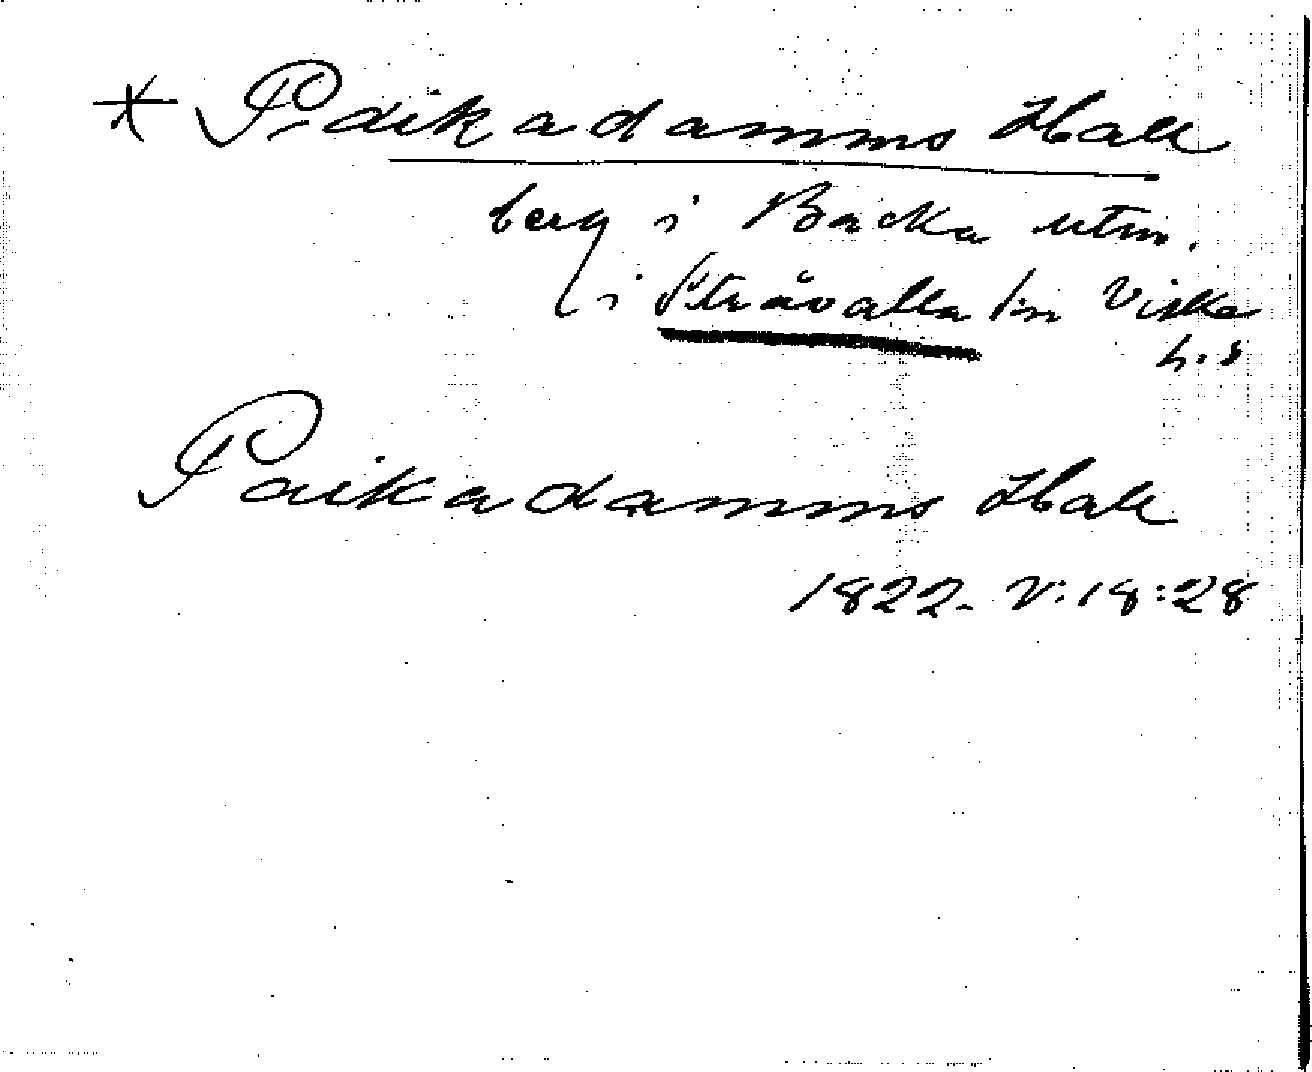 * Paikadamms Hall
berg i Backa utm.
i Stråvalla sn Viske
h.s
Paikadamms Hall
1822. V:18:28